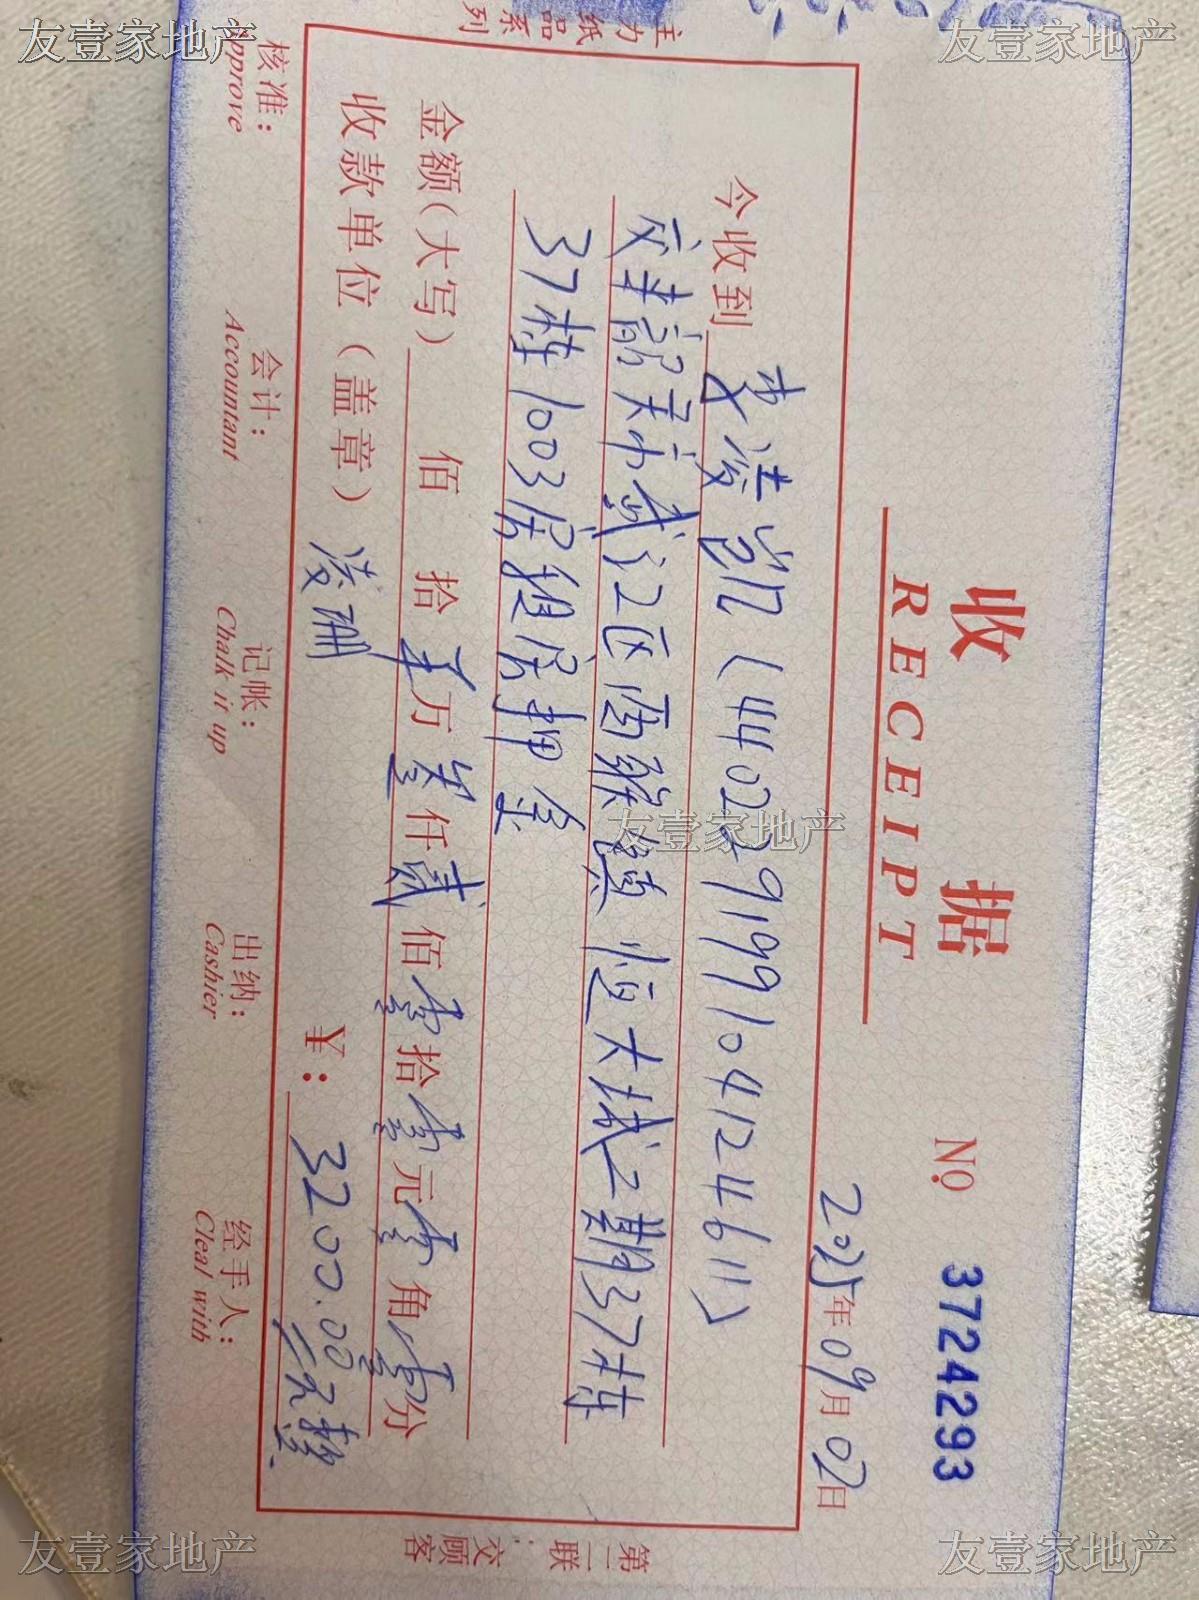 友壹家地产
友壹家地产
主力纸品系列
收 据
RECEIPT
No 3724293
2025年09月02日
今收到 凌凯（440229199104124611）
交来韶关市武江区西联镇恒大城二期37栋
37栋1003房租房押金
友壹家地产
金额（大写） 佰 拾 零万 叁仟贰佰零拾零元零角零分
收款单位（盖章） ¥：3200.00
核准： 会计： 记帐： 出纳： 经手人：
Approve Accountant Chalk it up Cashier Cleal with
第二联：交顾客
友壹家地产
友壹家地产